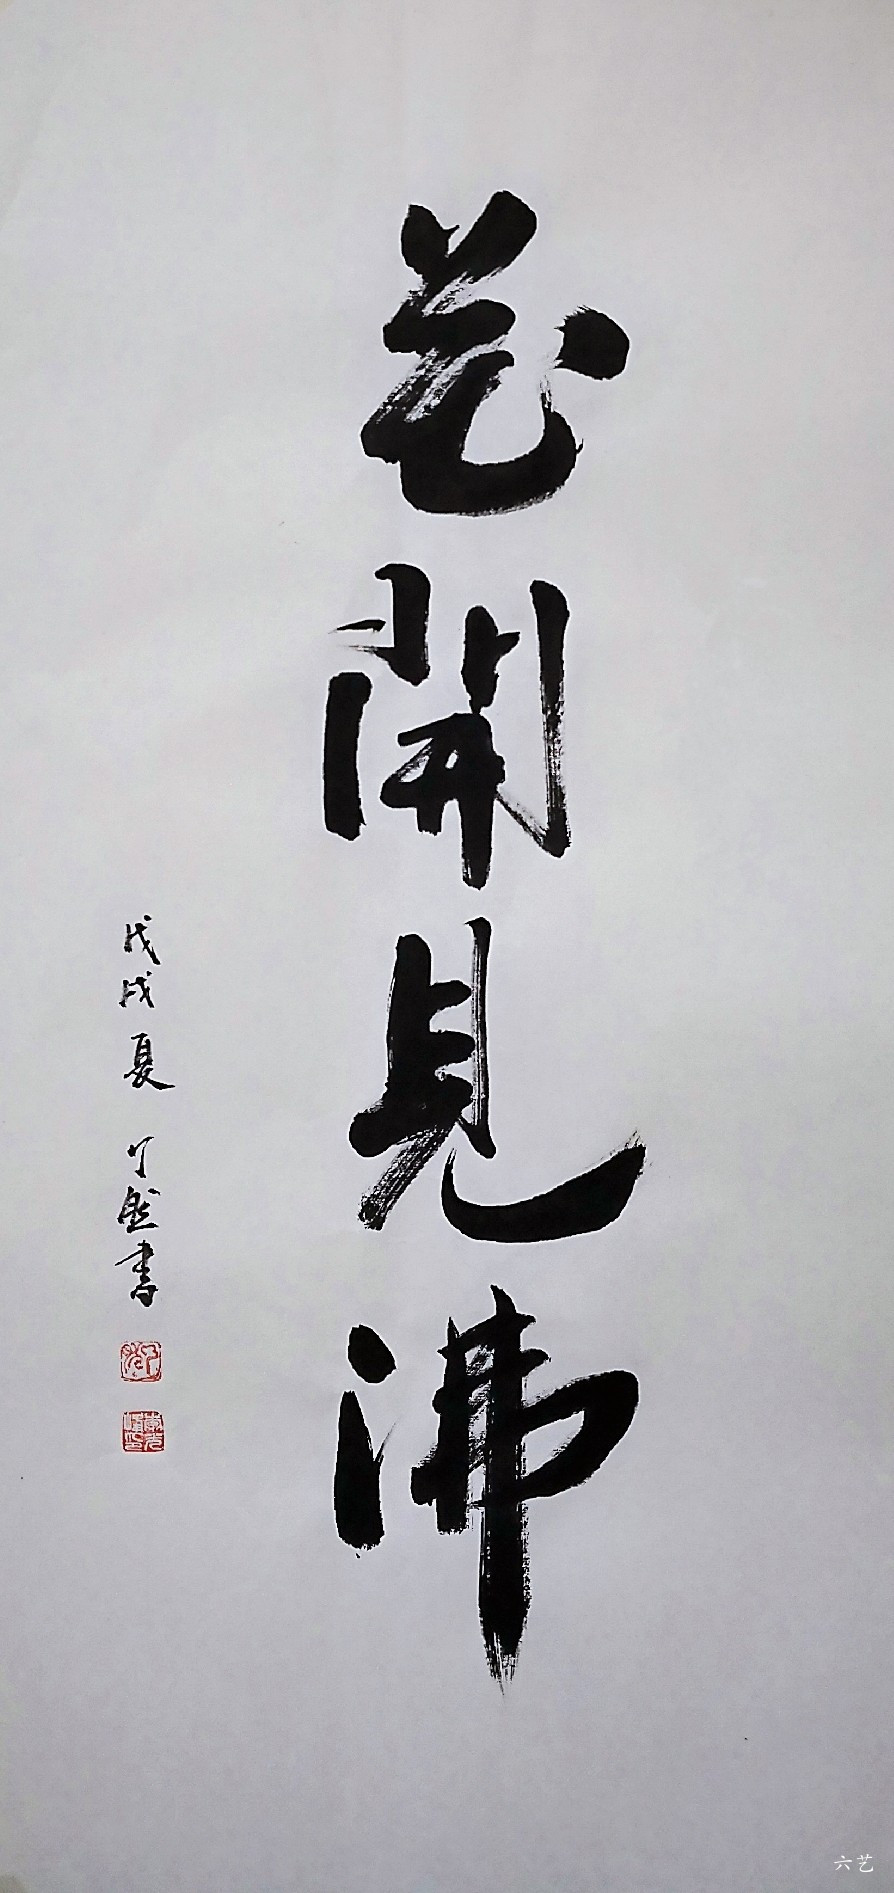 花開見佛
戊戌夏 了然書
六艺